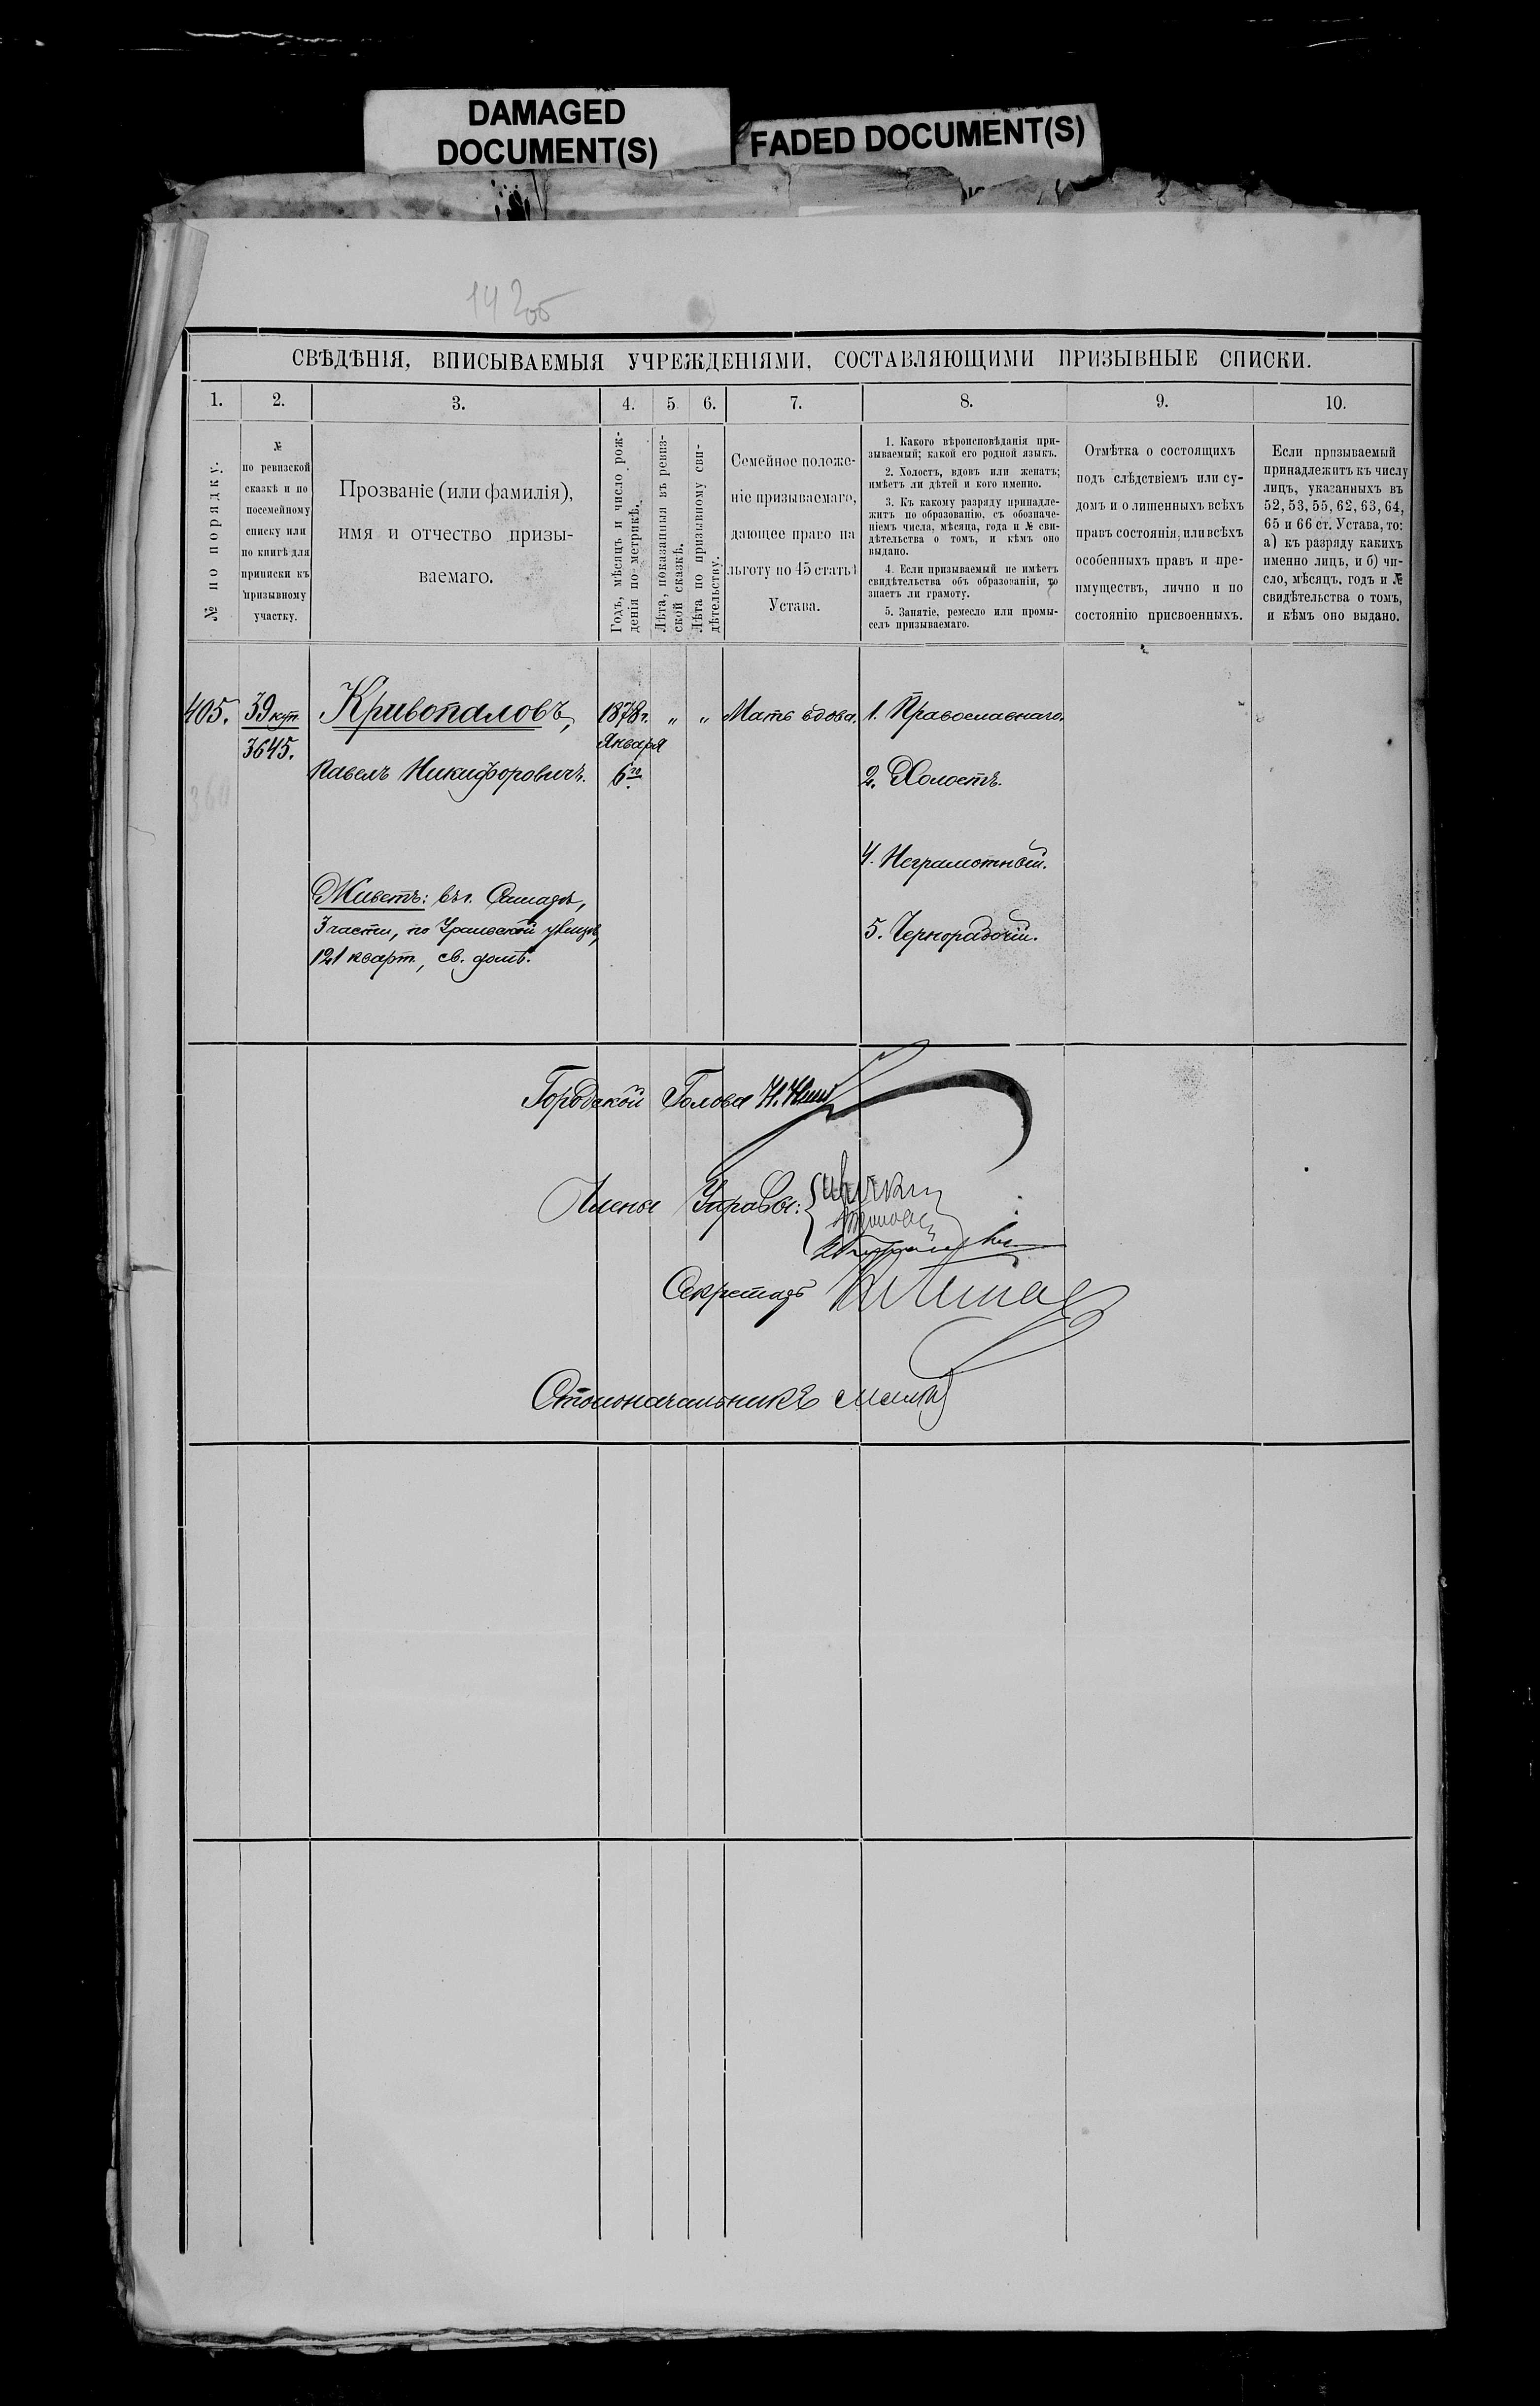 DAMAGED
DOCUMENT(S)
FADED DOCUMENT(S)
СВѢДѢНІЯ, ВПИСЫВАЕМЫЯ УЧРЕЖДЕНІЯМИ, СОСТАВЛЯЮЩИМИ ПРИЗЫВНЫЕ СПИСКИ.
1. 2. 3. 4. 5. 6. 7. 8. 9. 10.
№ по порядку.
№
по ревизской
сказкѣ и по
посемейному
списку или
по книгѣ для
приписки къ
призывному
участку.
Прозваніе (или фамилія),
имя и отчество призы-
ваемаго.
Годъ, мѣсяцъ и число рож-
денія по метрикѣ.
Лѣта, показанныя въ ревиз-
ской сказкѣ.
Лѣта по призывному сви-
дѣтельству.
Семейное положе-
ніе призываемаго,
дающее право на
льготу по 45 статьѣ
Устава.
1. Какого вѣроисповѣданія при-
зываемый; какой его родной языкъ.
2. Холостъ, вдовъ или женатъ;
имѣетъ ли дѣтей и кого именно.
3. Къ какому разряду принадле-
житъ по образованію, съ обозначе-
ніемъ числа, мѣсяца, года и № сви-
дѣтельства о томъ, и кѣмъ оно
выдано.
4. Если призываемый не имѣетъ
свидѣтельства объ образованіи, то
знаетъ ли грамоту.
5. Занятіе, ремесло или промы-
селъ призываемаго.
Отмѣтка о состоящихъ
подъ слѣдствіемъ или су-
домъ и о лишенныхъ всѣхъ
правъ состоянія, или всѣхъ
особенныхъ правъ и пре-
имуществъ, лично и по
состоянію присвоенныхъ.
Если призываемый
принадлежитъ къ числу
лицъ, указанныхъ въ
52, 53, 55, 62, 63, 64,
65 и 66 ст. Устава, то:
а) къ разряду какихъ
именно лицъ, и б) чи-
сло, мѣсяцъ, годъ и №
свидѣтельства о томъ,
и кѣмъ оно выдано.
405.
39 куп.
3645.
Кривопаловъ,
Павелъ Никифоровичъ.
Живетъ: въ г. Самарѣ,
3 части, по Уральской улицѣ,
121 кварт., св. домъ.
1878 г.
Января
6го
" "
Мать вдова.
1. Православнаго.
2. Холостъ.
4. Неграмотный.
5. Чернорабочій.
Городской Голова
Члены Управы:
Секретарь
Столоначальникъ